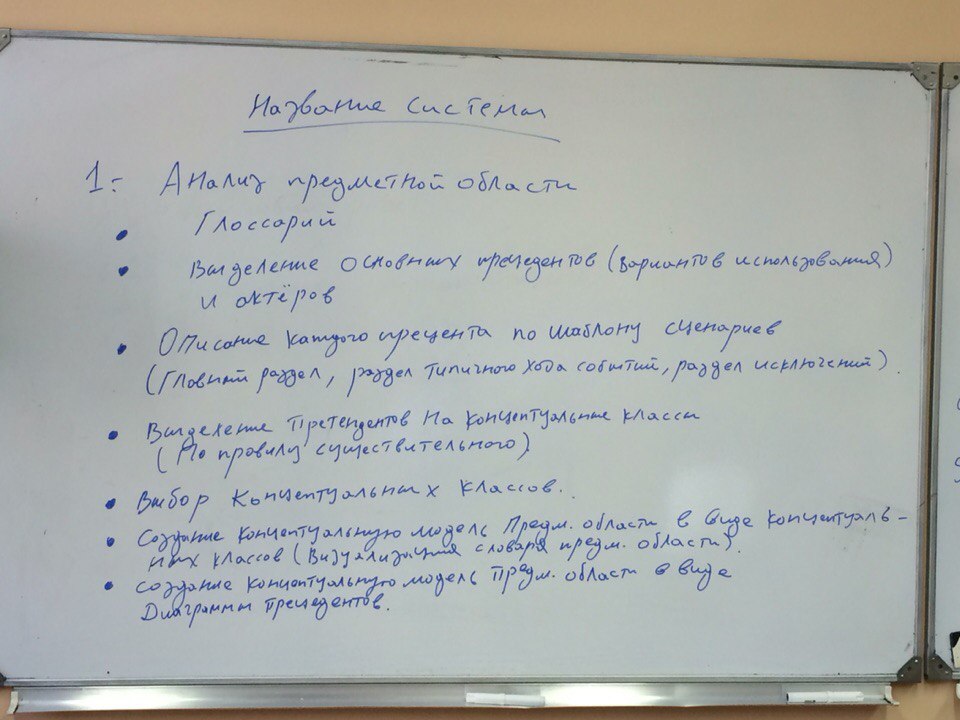 Название системы
1: Анализ предметной области
• Глоссарий
• Выделение основных прецедентов (вариантов использования)
и актёров
• Описание каждого прецента по шаблону сценариев
(Главный раздел, раздел типичного хода событий, раздел исключений).
• Выделение претендентов на концептуальные классы
(По правилу существительного)
• Выбор концептуальных классов.
• Создание концептуальную модель Предм. области в виде концептуаль-
ных классов (Визуализация словаря предм. области).
• создание концептуальную модель Предм. области в виде
Диаграммы прецедентов.